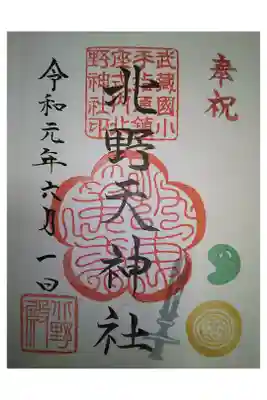 奉祝
武藏國小
手指原鎮
座式内北
野神社印
北野天神社
令和元年六月一日